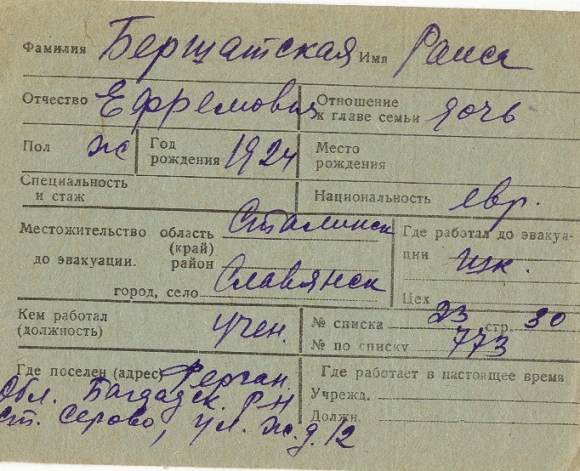 Фамилия Бершатская Имя Раиса
Отчество Ефремовна Отношение к главе семьи дочь
Пол ж Год рождения 1924 Место рождения
Специальность и стаж Национальность евр.
Местожительство область Сталинск
(край)
до эвакуации. район
город, село Славянск
Где работал до эвакуа-
ции шк.
Цех
Кем работал
(должность) учен.
№ списка 23 стр. 30
№ по списку 773
Где поселен (адрес) Ферган.
Обл. Багдадск. РН
ст. Серово, ул. Ж.д. 12
Где работает в настоящее время
Учрежд.
Должн.